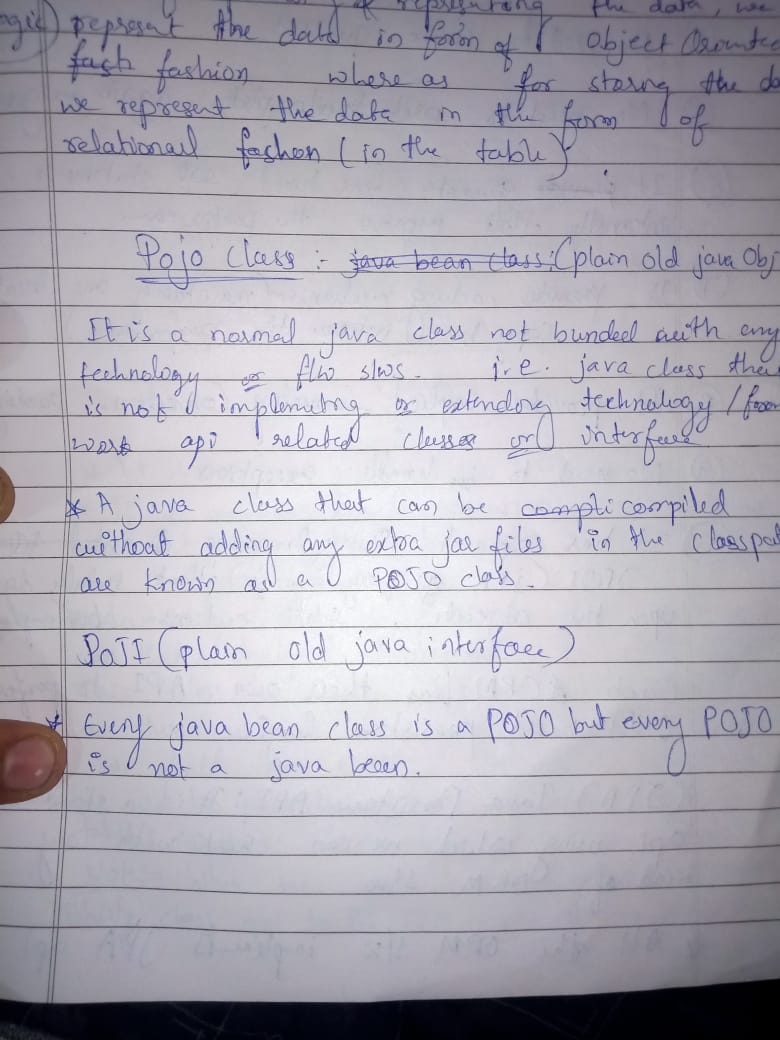 representing the data, we
represent the data in form of Object Oriented
fash fashion where as for storing the da
we represent the data in the form of
relationail fashon (in the table)
Pojo Class :- java bean class: (plain old java Obj
It is a normal java class not bundeel with any
technology or f/w s/ws. i.e. java class tha
is not implementing or extending technology / fram
work api related classes or interface
* A java class that can be compli compiled
without adding any extra jar files in the classpat
are known as a POJO class.
POJI (plain old java interface)
* Every java bean class is a POJO but every POJO
is not a java bean.